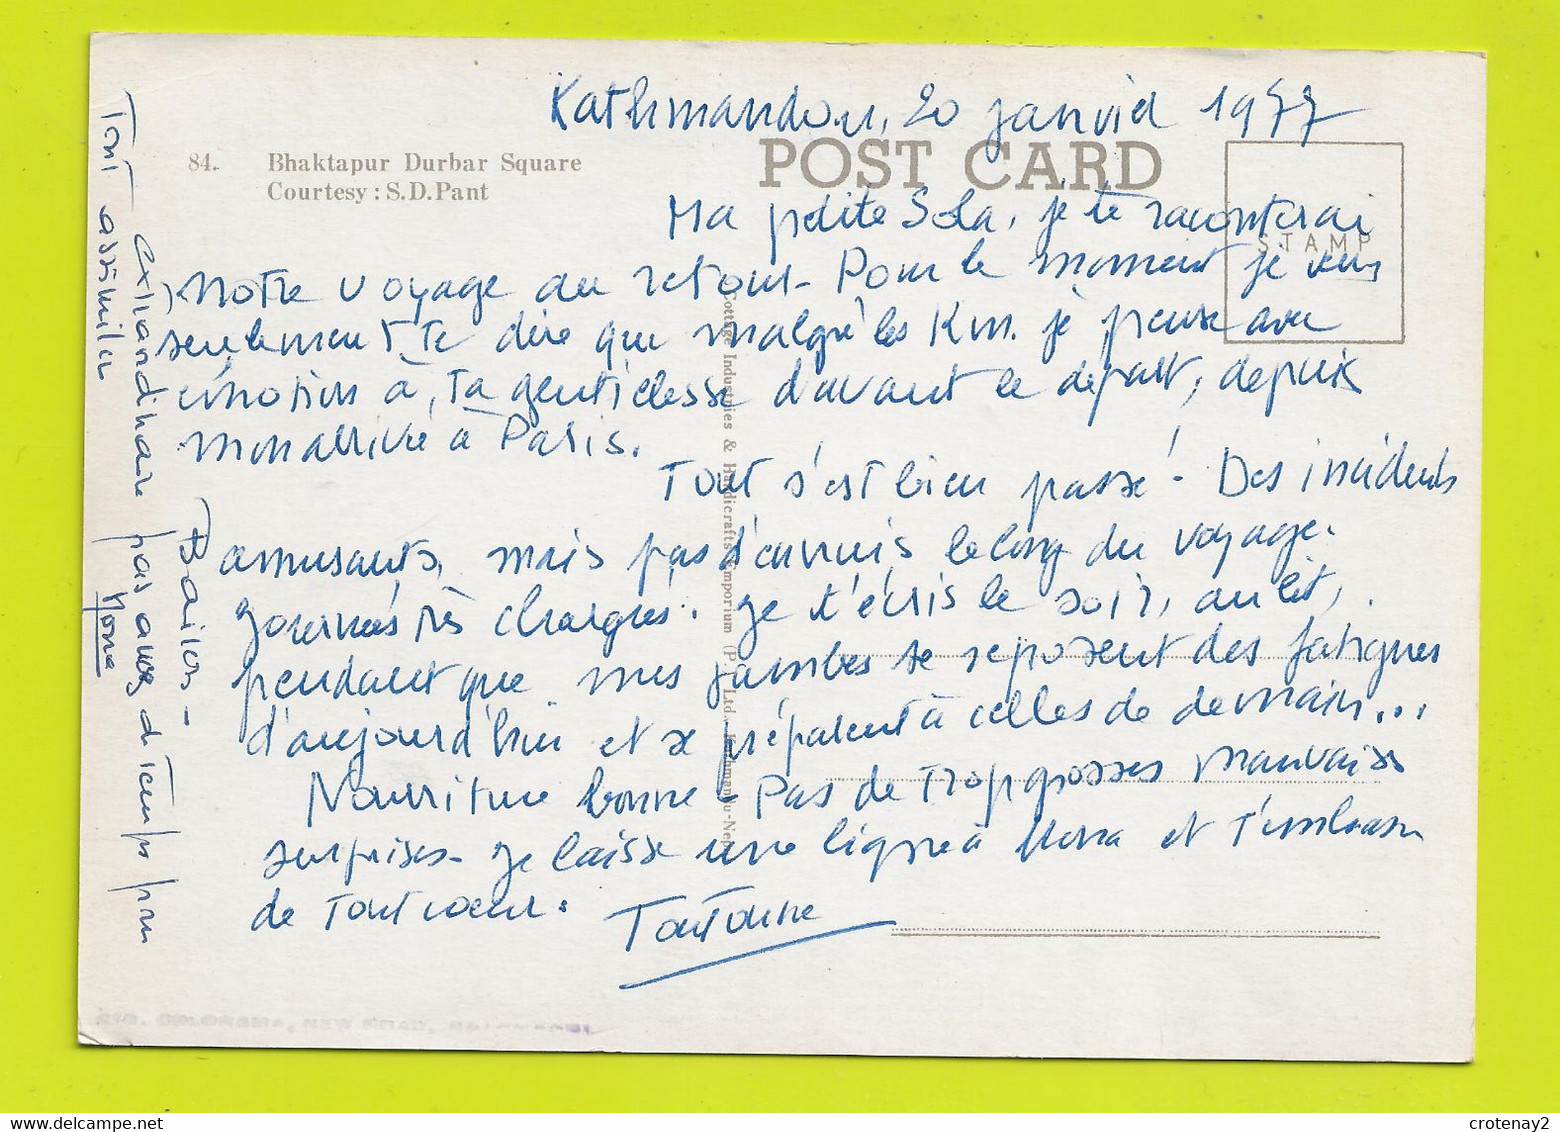 Kathmandou, 20 janvier 1977
84. Bhaktapur Durbar Square
Courtesy : S.D.Pant
POST CARD
STAMP
Ma petite Sola, je te raconterai
notre voyage au retour - Pour le moment je veux
seulement te dire que malgré les Km. je pense avec
émotion à ta gentillesse d'avant le départ, depuis
mon arrivée à Paris.
Tout s'est bien passé ! Des incidents
amusants, mais pas d'ennuis le long du voyage.
Journées très chargées. Je t'écris le soir, au lit,
pendant que mes jambes se reposent des fatigues
d'aujourd'hui et se préparent à celles de demain...
Nourriture bonne - Pas de trop grosses mauvaises
surprises - je laisse une ligne à Nona et t'embrasse
de tout coeur.
Toutoune
Baisers -
extraordinaire pas assez de temps pour
Tout assimiler
Nona
Cottage Industries & Handicrafts Emporium (P) Ltd., Kathmandu-Nepal
COLORAMA, NEW ROAD,
crotenay2